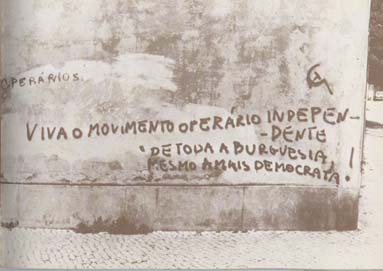 OPERÁRIOS.
VIVA O MOVIMENTO OPERÁRIO INDEPEN-
-DENTE
DE TODA A BURGUESIA,
MESMO A MAIS DEMOCRATA!